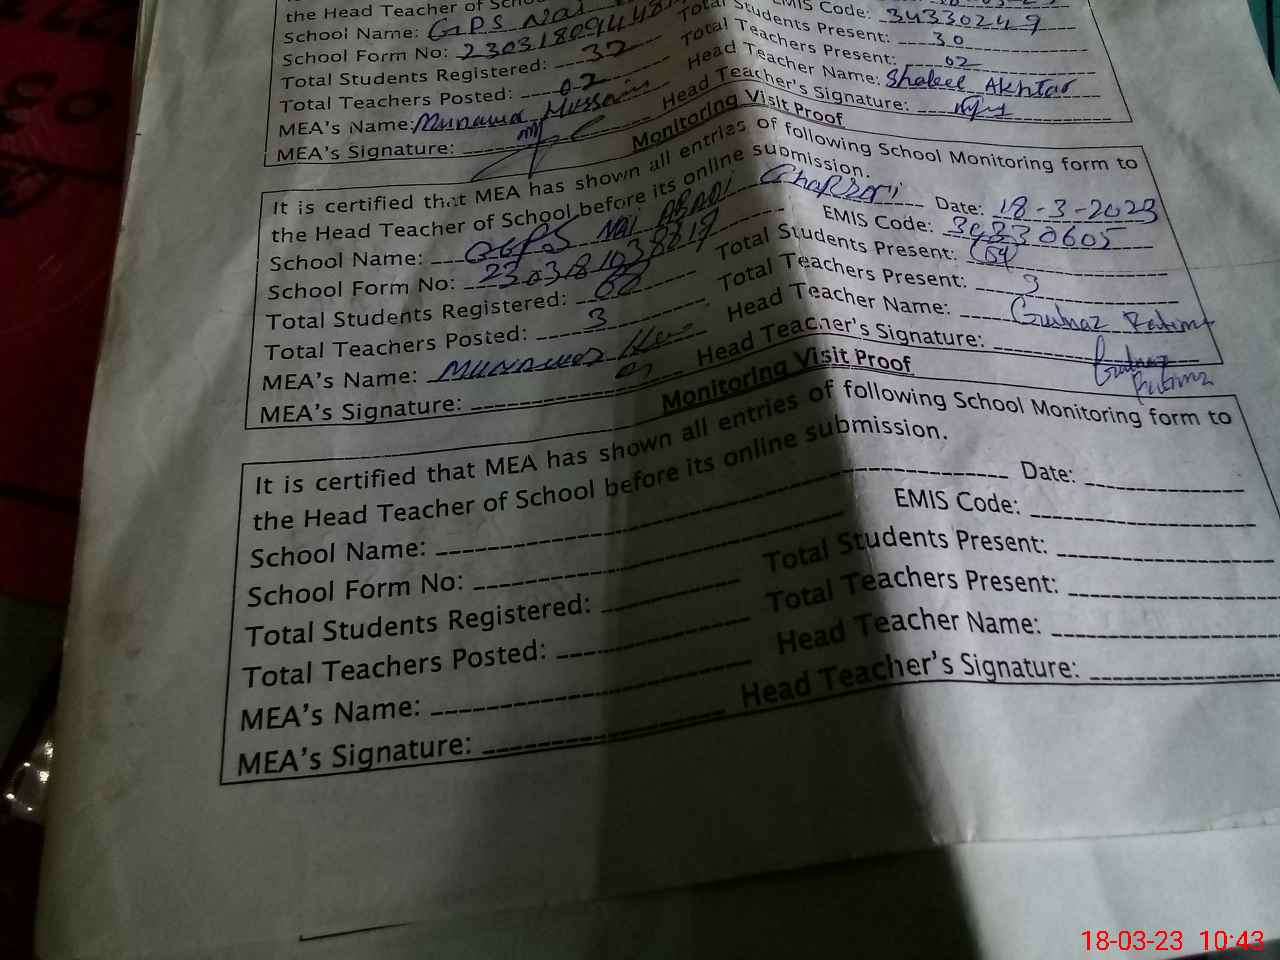 the Head Teacher of
School Name: GPS Nai
School Form No:
EMIS Code: 34330249
Total Students Registered: 32 Total Students Present: 30
Total Teachers Posted: 02 Total Teachers Present: 02
MEA's Name: Head Teacher Name: Shakeel Akhtar
MEA's Signature: Head Teacher's Signature:
Monitoring Visit Proof
It is certified that MEA has shown all entries of following School Monitoring form to
the Head Teacher of School before its online submission.
School Name: NAI ABADI Date: 18-3-2023
School Form No: EMIS Code:
Total Students Registered: Total Students Present:
Total Teachers Posted: 3 Total Teachers Present: 3
MEA's Name: Head Teacher Name: Gulnaz
MEA's Signature: Head Teacher's Signature: Gulnaz
Monitoring Visit Proof
It is certified that MEA has shown all entries of following School Monitoring form to
the Head Teacher of School before its online submission.
School Name: Date:
School Form No: EMIS Code:
Total Students Registered: Total Students Present:
Total Teachers Posted: Total Teachers Present:
MEA's Name: Head Teacher Name:
MEA's Signature: Head Teacher's Signature:
18-03-23 10:43